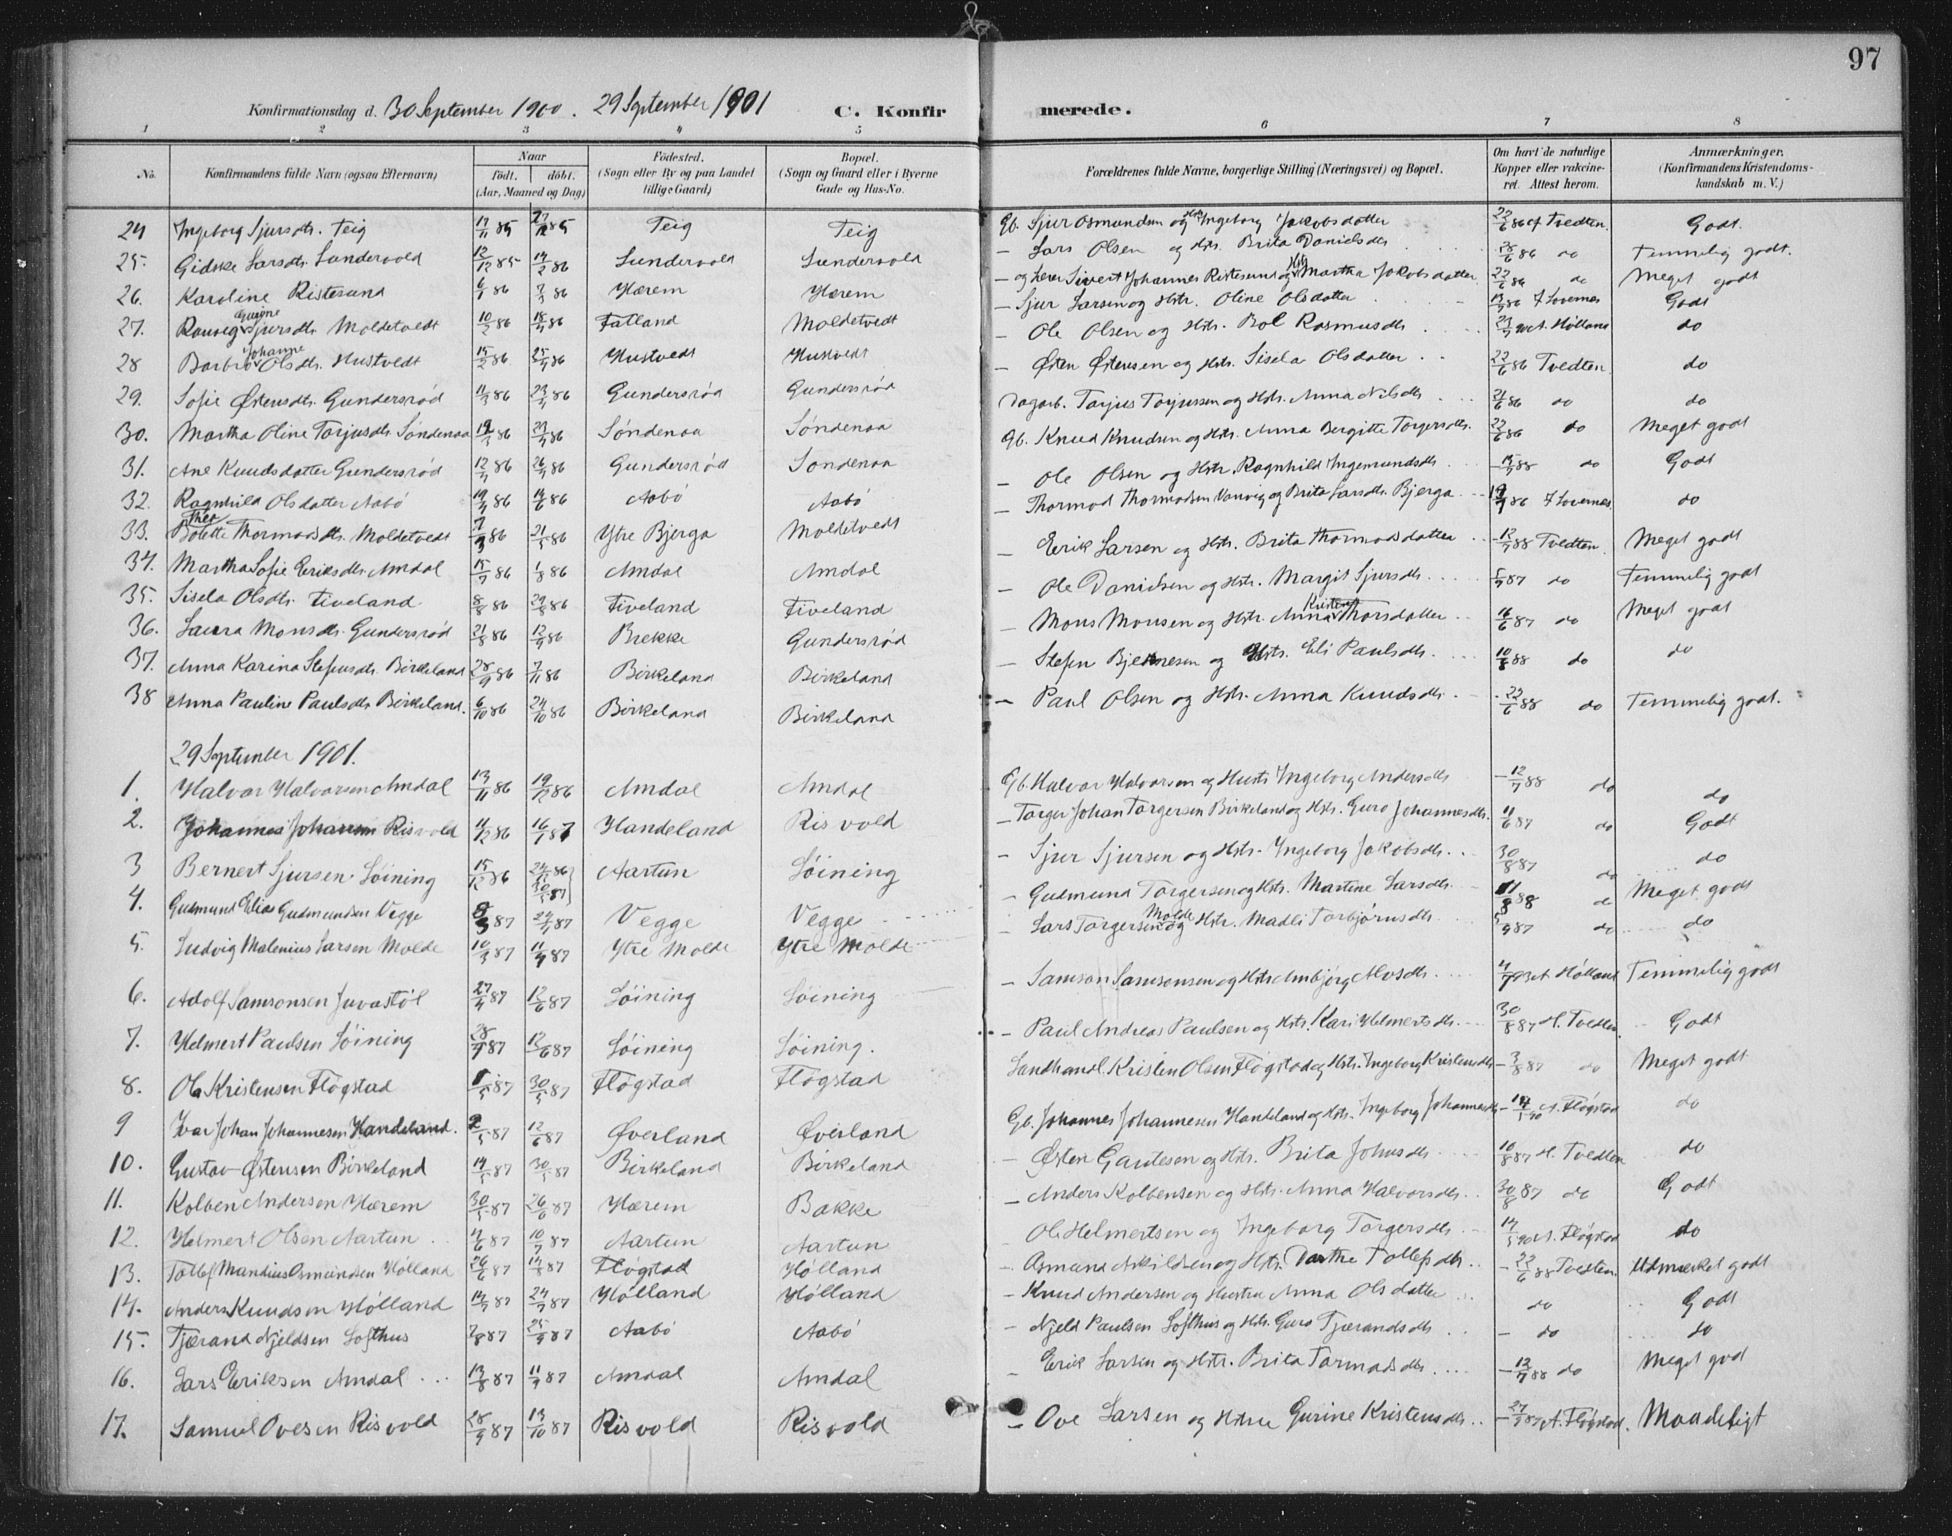 97
Konfirmationsdag d. 30 September 1900. 29 September 1901 C. Konfirmerede.
1 2 3 4 5 6 7 8
No. Konfirmandens fulde Navn (ogsaa Efternavn) Naar födt. döbt. (Aar, Maaned og Dag) Födested. (Sogn eller By og paa Landet tillige Gaard) Bopæl. (Sogn og Gaard eller i Byerne Gade og Hus-No. Forældrenes fulde Navne, borgerlige Stilling (Næringsvei) og Bopæl. Om havt de naturlige Kopper eller vakcineret. Attest herom. Anmærkninger. (Konfirmandens Kristendomskundskab m. V.)
24 Ingeborg Sjursdtr. Teig 17/11 85 27/12 85 Teig Teig Gb. Sjur Osmundsen og Hstr. Ingeborg Jakobsdatter 22/6 86 af Tvedten Godt.
25. Gidske Larsdtr. Sundervold 12/12 85 14/2 86 Sundervold Sundervold – Lars Olsen og Hstr. Brita Danielsdtr 28/6 86 do Temmelig godt.
26. Karoline Ristesund 6/1 86 7/3 86 Hærem Hærem – og Lærer Sivert Johannes Ristesund og Hstr Martha Jakobsdatter 22/6 86 do Meget godt
27. Ranveig Gurine Sjursdtr. Moldetvedt 10/2 86 18/4 86 Fatland Moldetvedt – Sjur Larsen og Hstr. Oline Olsdatter 86 Lovernes Godt
28 Barbro Johanne Olsdtr. Hustvedt 15/2 86 25/4 86 Hustvedt Hustvedt – Ole Olsen og Hstr. Bol Rasmusdtr Hølland do
29. Sofie Østensdtr. Gundersrød 11/3 86 23/4 86 Gundersrød Gundersrød – Østen Østensen og Hstr. Sisela Olsdatter 22/6 86 Tvedten do
30. Martha Oline Tarjusdtr. Søndenaa 19/3 86 23/4 86 Søndenaa Søndenaa Dagarb. Tarjus Torjussen og Hstr. Anna Nilsdtr 21/6 86 do do
31. Ane Knudsdatter Gundersrød 12/4 86 26/4 86 Gundersrød Søndenaa Gb. Knud Knudsen og Hstr. Anna Bergitte Torgersdtr. 22/6 86 do Meget godt
32. Ragnhild Olsdatter Aabó 19/4 86 14/6 86 Aabó Aabó – Ole Olsen og Hstr. Ragnhild Ingemundsdtr 88 do Godt
33. Thea Bolette Thormodsdtr. Moldetvedt 7/3 86 21/5 86 Ytre Bjerga Moldetvedt – Thormod Thormodsen Vanvig og Brita Larsdtr. Bjerga 86 Lovernes do
34. Martha Sofie Eriksdtr Amdal 15/7 86 1/8 86 Amdal Amdal – Erik Larsen og Hstr. Brita Thormodsdatter 12/7 88 Tvedten Meget godt
35. Sisela Olsdtr. Tiveland 8/8 86 29/8 86 Tiveland Tiveland – Ole Danielsen og Hstr. Margit Sjursdtr 87 do Temmelig godt
36. Laura Monsdtr. Gundersrød 21/8 86 12/9 86 Brekke Gundersrød – Mons Monsen og Hstr. Anna Kristine Thorsdatter 16/6 87 do Meget godt
37. Anna Karina Stefensdtr. Birkeland 28/9 86 7/11 86 Birkeland Birkeland – Stefen Bjernesen og Hstr. Eli Paulsdtr. 88 do do
38 Anna Pauline Paulsdtr Birkeland. 6/10 86 24/10 86 Birkeland Birkeland – Paul Olsen og Hstr. Anna Knudsdtr 23/6 88 do Temmelig godt.
29 September 1901.
1. Halvor Halvorsen Amdal 13/11 86 19/12 86 Amdal Amdal Gb. Halvor Halvorsen og Hustr Ingeborg Andersdtr 12/7 88 do do
2. Johannes Johansen Risvold 11/12 86 16/1 87 Handeland Risvold – Torger Johan Torgersen Birkeland og Hstr. Guro Johannesdtr. 11/6 87 do Godt
3 Bernert Sjursen Löining 15/12 86 24/12 86 Aartun Löining – Sjur Sjursen og Hstr. Ingeborg Jakobsdtr. 30/8 87 do do
4. Gudmund Elias Gudmundsen Vegge 8/3 87 87 Vegge Vegge – Gudmund Torgersen og Hstr. Martine Larsdtr. 88 do Meget godt
5. Ludvig Malenius Larsen Molde 10/3 87 11/4 87 Ytre Molde Ytre Molde – Lars Torgersen Molde og Hstr. Madli Torbjørnsdtr 5/9 87 do do
6. Adolf Samsonsen Juvastöl 27/4 87 12/6 87 Löining Löining – Samson Samsonsen og Hstr. Anbjørg Alvsdtr. Hölland Temmelig godt
7. Helmert Paulsen Löining 28/4 87 12/6 87 Löining Löining. – Paul Andreas Paulsen og Hstr. Kari Helmertsdtr. 30/8 87 A. Tvedten Godt
8. Ole Kristensen Flögstad 1/5 87 30/5 87 Flögstad Flögstad Landhandl. Kristen Olsen Flögstad og Hstr. Ingeborg Kristensdtr 3/8 87 do Meget godt
9 Ivar Johan Johannesen Handeland. 2/5 87 12/6 87 Øverland Øverland Gb. Johannes Johannesen Handeland og Hstr. Ingeborg Johannesdtr 14/5 90 A. Flögstad do
10. Gustav Østensen Birkeland 14/5 87 30/5 87 Birkeland Birkeland – Østen Gautesen og Hstr. Brita Johnsdtr 10/8 87 A. Tvedten do
11. Kolben Andersen Hærem 30/5 87 26/6 87 Hærem Bakke – Anders Kolbensen og Hstr. Anna Halvorsdtr. 30/8 87 do Godt
12. Helmert Olsen Aartun 11/6 87 10/7 87 Aartun Aartun – Ole Helmertsen og Ingeborg Torgersdtr. 14/5 90 A. Flögstad do
13. Tollef Mandius Osmundsen Hölland 26/6 87 14/8 87 Flogstad Hölland – Osmund Askildsen og Hstr. Dorthe Tollefsdtr. 22/6 88 Tvedten. Udmærket godt
14. Anders Knudsen Hölland 14/7 87 24/7 87 Hölland Hölland – Knud Andersen og Hustru Anna Olsdatter do Godt
15. Tjærand Njeldsen Lofthus 7/8 87 25/9 87 Aabó Aabó – Njeld Paulsen Lofthus og Hstr. Guro Tjærandsdtr – do do
16. Lars Eriksen Amdal 13/8 87 11/9 87 Amdal Amdal – Erik Larsen og Hstr. Brita Tormodsdtr. 12/7 88 do Meget god
17. Samuel Ovesen Risvold 28/9 87 13/10 87 Risvold Risvold – Ove Larsen og Hstru Gurine Kristensdtr. 87 A. Flögstad. Maadeligt